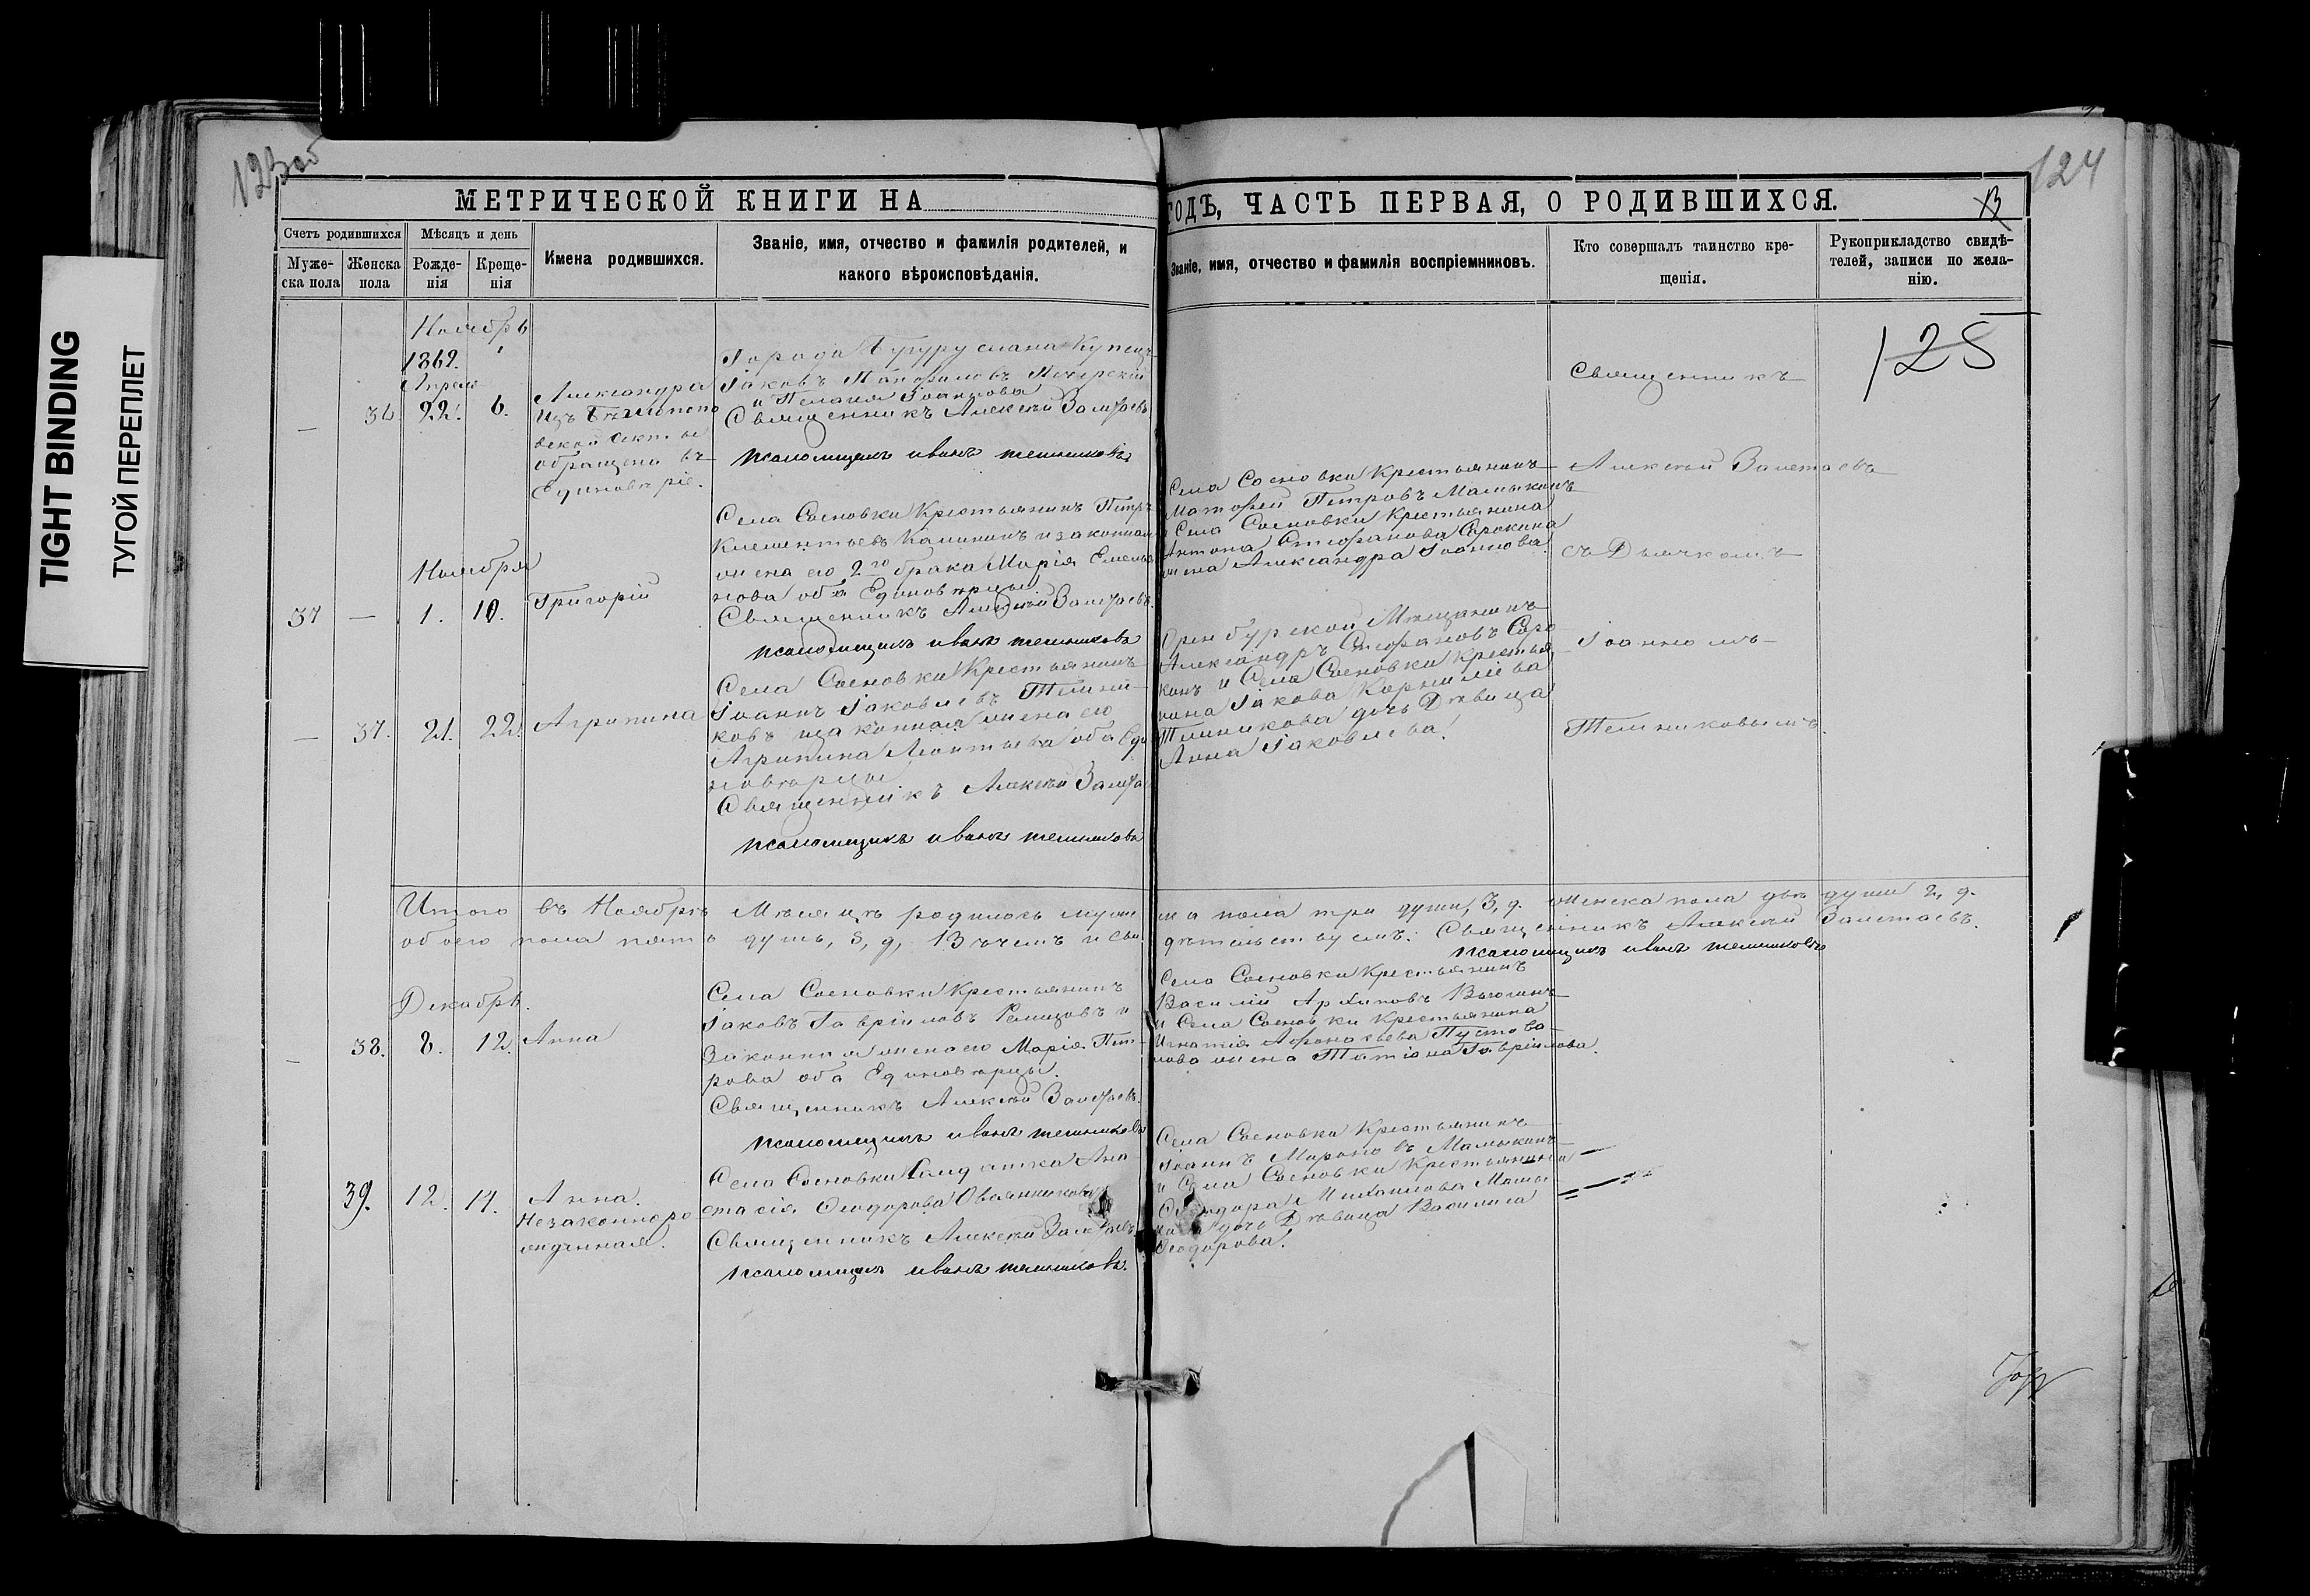 TIGHT BINDING
ТУГОЙ ПЕРЕПЛЕТ
123об
124
МЕТРИЧЕСКОЙ КНИГИ НА
ГОДЪ, ЧАСТЬ ПЕРВАЯ, О РОДИВШИХСЯ.
13
125
Счетъ родившихся
Мѣсяцъ и день
Муже-
ска пола
Женска
пола
Рожде-
нія
Креще-
нія
Имена родившихся.
Званіе, имя, отчество и фамилія родителей, и
какого вѣроисповѣданія.
Званіе, имя, отчество и фамилія воспріемниковъ.
Кто совершалъ таинство кре-
щенія.
Рукоприкладство свидѣ-
телей, записи по жела-
нію.
Ноябрь
1862.
Апреля
— 36. 22. 6.
Александра
Изъ
секты
обращена въ
Единовѣріе.
Города Бугуруслана Купецъ
Іаковъ
и Пелагія Іоаннова
Священникъ Алексѣй Залетаевъ.
псаломщикъ иванъ темниковъ
Священникъ
Алексѣй Залетаевъ
съ Дьячкомъ
Іоанномъ
Темниковымъ.
Ноября
37 — 1. 10.
Григорій
Села Сосновки Крестьянинъ Петръ
Климентьевъ Калининъ и законная
жена его 2го брака Марія Емелья
нова оба Единовѣрцы.
Священникъ Алексѣй Залетаевъ.
псаломщикъ иванъ темниковъ
Села Сосновки Крестьянинъ
Матфей Петровъ Мамыкинъ
и Села Сосновки Крестьянина
Антона Стефанова Сорокина
жена Александра Іоаннова.
— 37. 21. 22.
Агрипина
Села Сосновки Крестьянинъ
Іоаннъ Іаковлевъ Темни-
ковъ и законная жена его
Агрипина Леонтьева оба Еди
новѣрцы
Священникъ Алексѣй Залетае
псаломщикъ иванъ темниковъ
Оренбургской Мѣщанинъ
Александръ Стефановъ Соро
кинъ и Села Сосновки крестья
нина Іакова Корнилiева
Темникова дочь Дѣвица
Анна Іаковлева.
Итого въ Ноябрѣ Мѣсяцѣ родилось муж
ска пола три души, 3, д. женска пола двѣ души 2, д.
обоего пола пять душъ, 5, д, В чемъ и сви
дѣтельствуемъ: Священникъ Алексѣй Залетаевъ.
псаломщикъ иванъ темниковъ
Декабрь.
— 38. 8. 12.
Анна
Села Сосновки Крестьянинъ
Іаковъ Гавріиловъ Ремизовъ и
Законная жена его Марія Пет-
рова оба Единовѣрцы.
Священникъ Алексѣй Залетаевъ.
псаломщикъ иванъ темниковъ
Села Сосновки Крестьянинъ
Василій Архиповъ Вьюгинъ
и Села Сосновки Крестьянина
Игнатія Афонасьева Пустова-
лова жена Татіана Гавріилова.
39. 12. 14.
Анна.
Незаконноро
жденная.
Села Сосновки Солдатка Ана-
стасія Ѳеодорова Овсянникова
Священникъ Алексѣй Залетаевъ
псаломщикъ иванъ темниковъ.
Села Сосновки Крестьянинъ
Іоаннъ Мироновъ Мамыкинъ
и Села Сосновки Крестьянина
Ѳеодора Михаилова Мамы
кина дочь Дѣвица Василиса
Ѳеодорова.